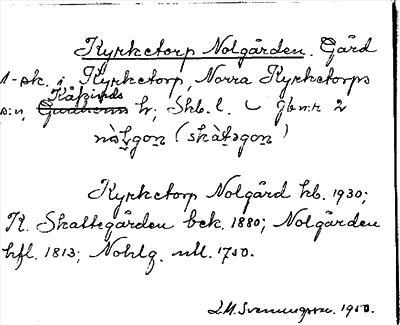 Kyrketorp Nolgården. Gård
1-sk. i Kyrketorp, Norra Kyrketorps
s:n, Kåkinds hr, Skb. l. Gbnr 2
nòlgon (skàtsgon)
Kyrketorp Nolgård hb. 1930;
K. Skattegården bek. 1880; Nolgården
hfl. 1813; Nohlg. ml. 1750.
S.M. Svenungsson. 1950.